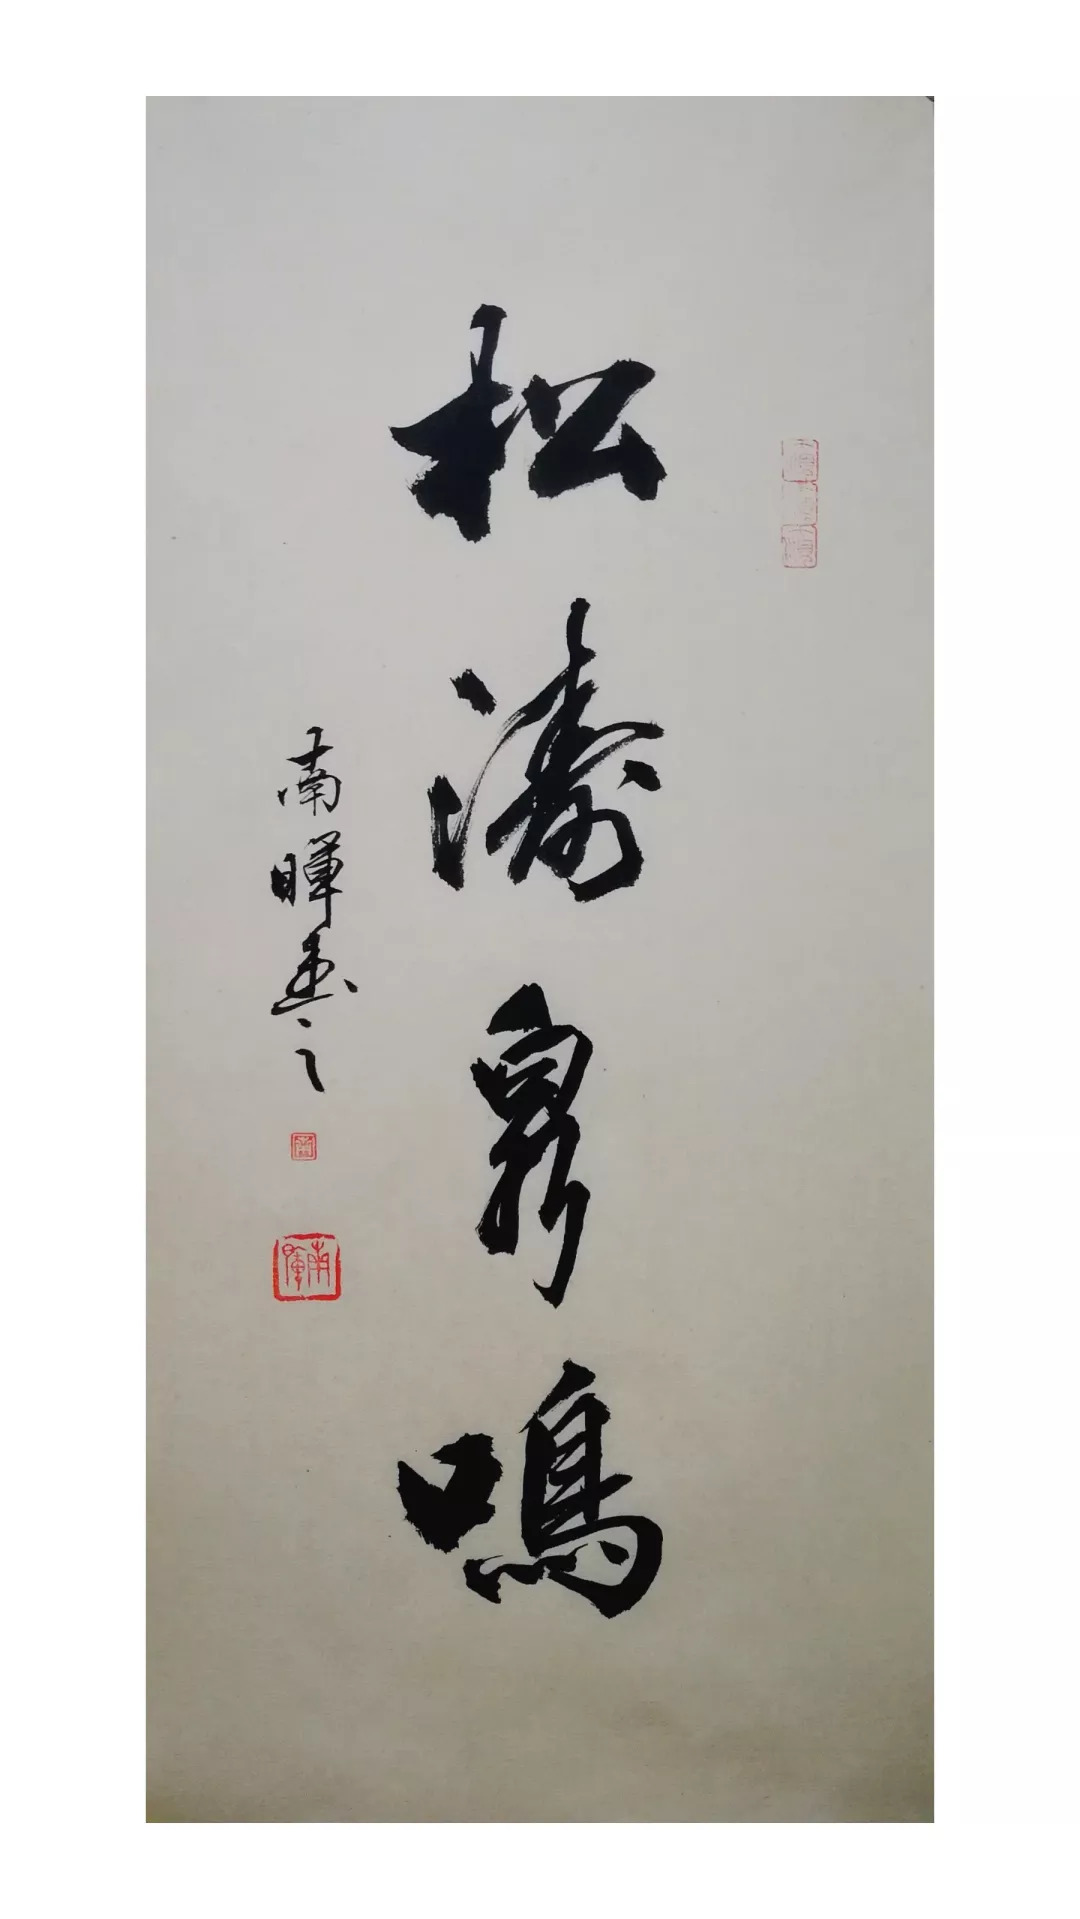 松濤泉鳴
南暉書之
南
南暉